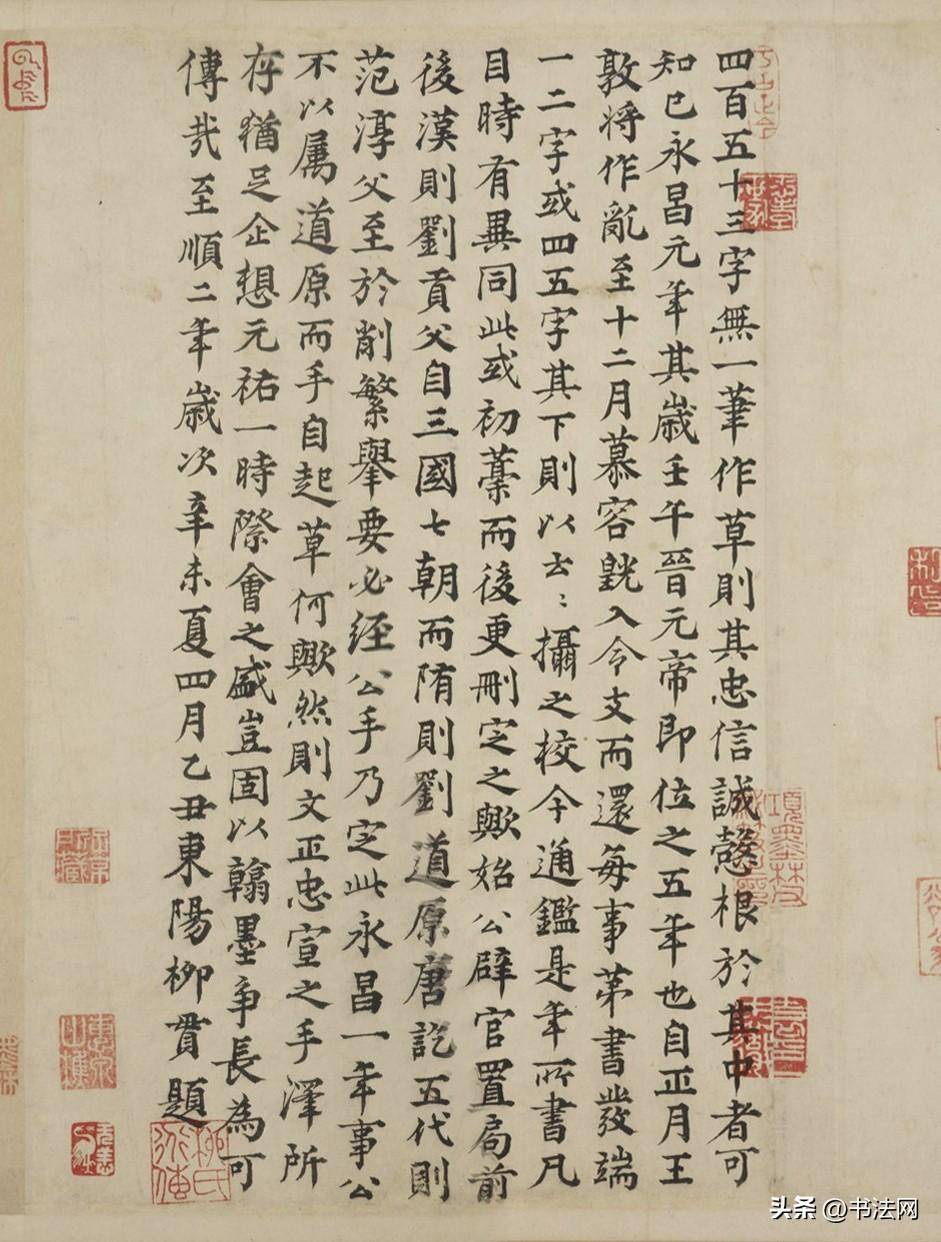 四百五十三字無一筆作草則其忠信誠慤根於其中者可
知已永昌元年其歲壬午晉元帝即位之五年也自正月王
敦將作亂至十二月慕容皝入令支而還每事第書發端
一二字或四五字其下則以云〻攝之校今通鑑是年所書凡
目時有異同此或初藁而後更刪定之歟始公辟官置局前
後漢則劉貢父自三國七朝而隋則劉道原唐訖五代則
范淳父至於削繁舉要必經公手乃定此永昌一年事公
不以属道原而手自起草何歟然則文正忠宣之手澤所
存猶足企想元祐一時際會之盛豈固以翰墨爭長為可
傳哉至順二年歲次辛未夏四月乙丑東陽柳貫題
头条 @书法网